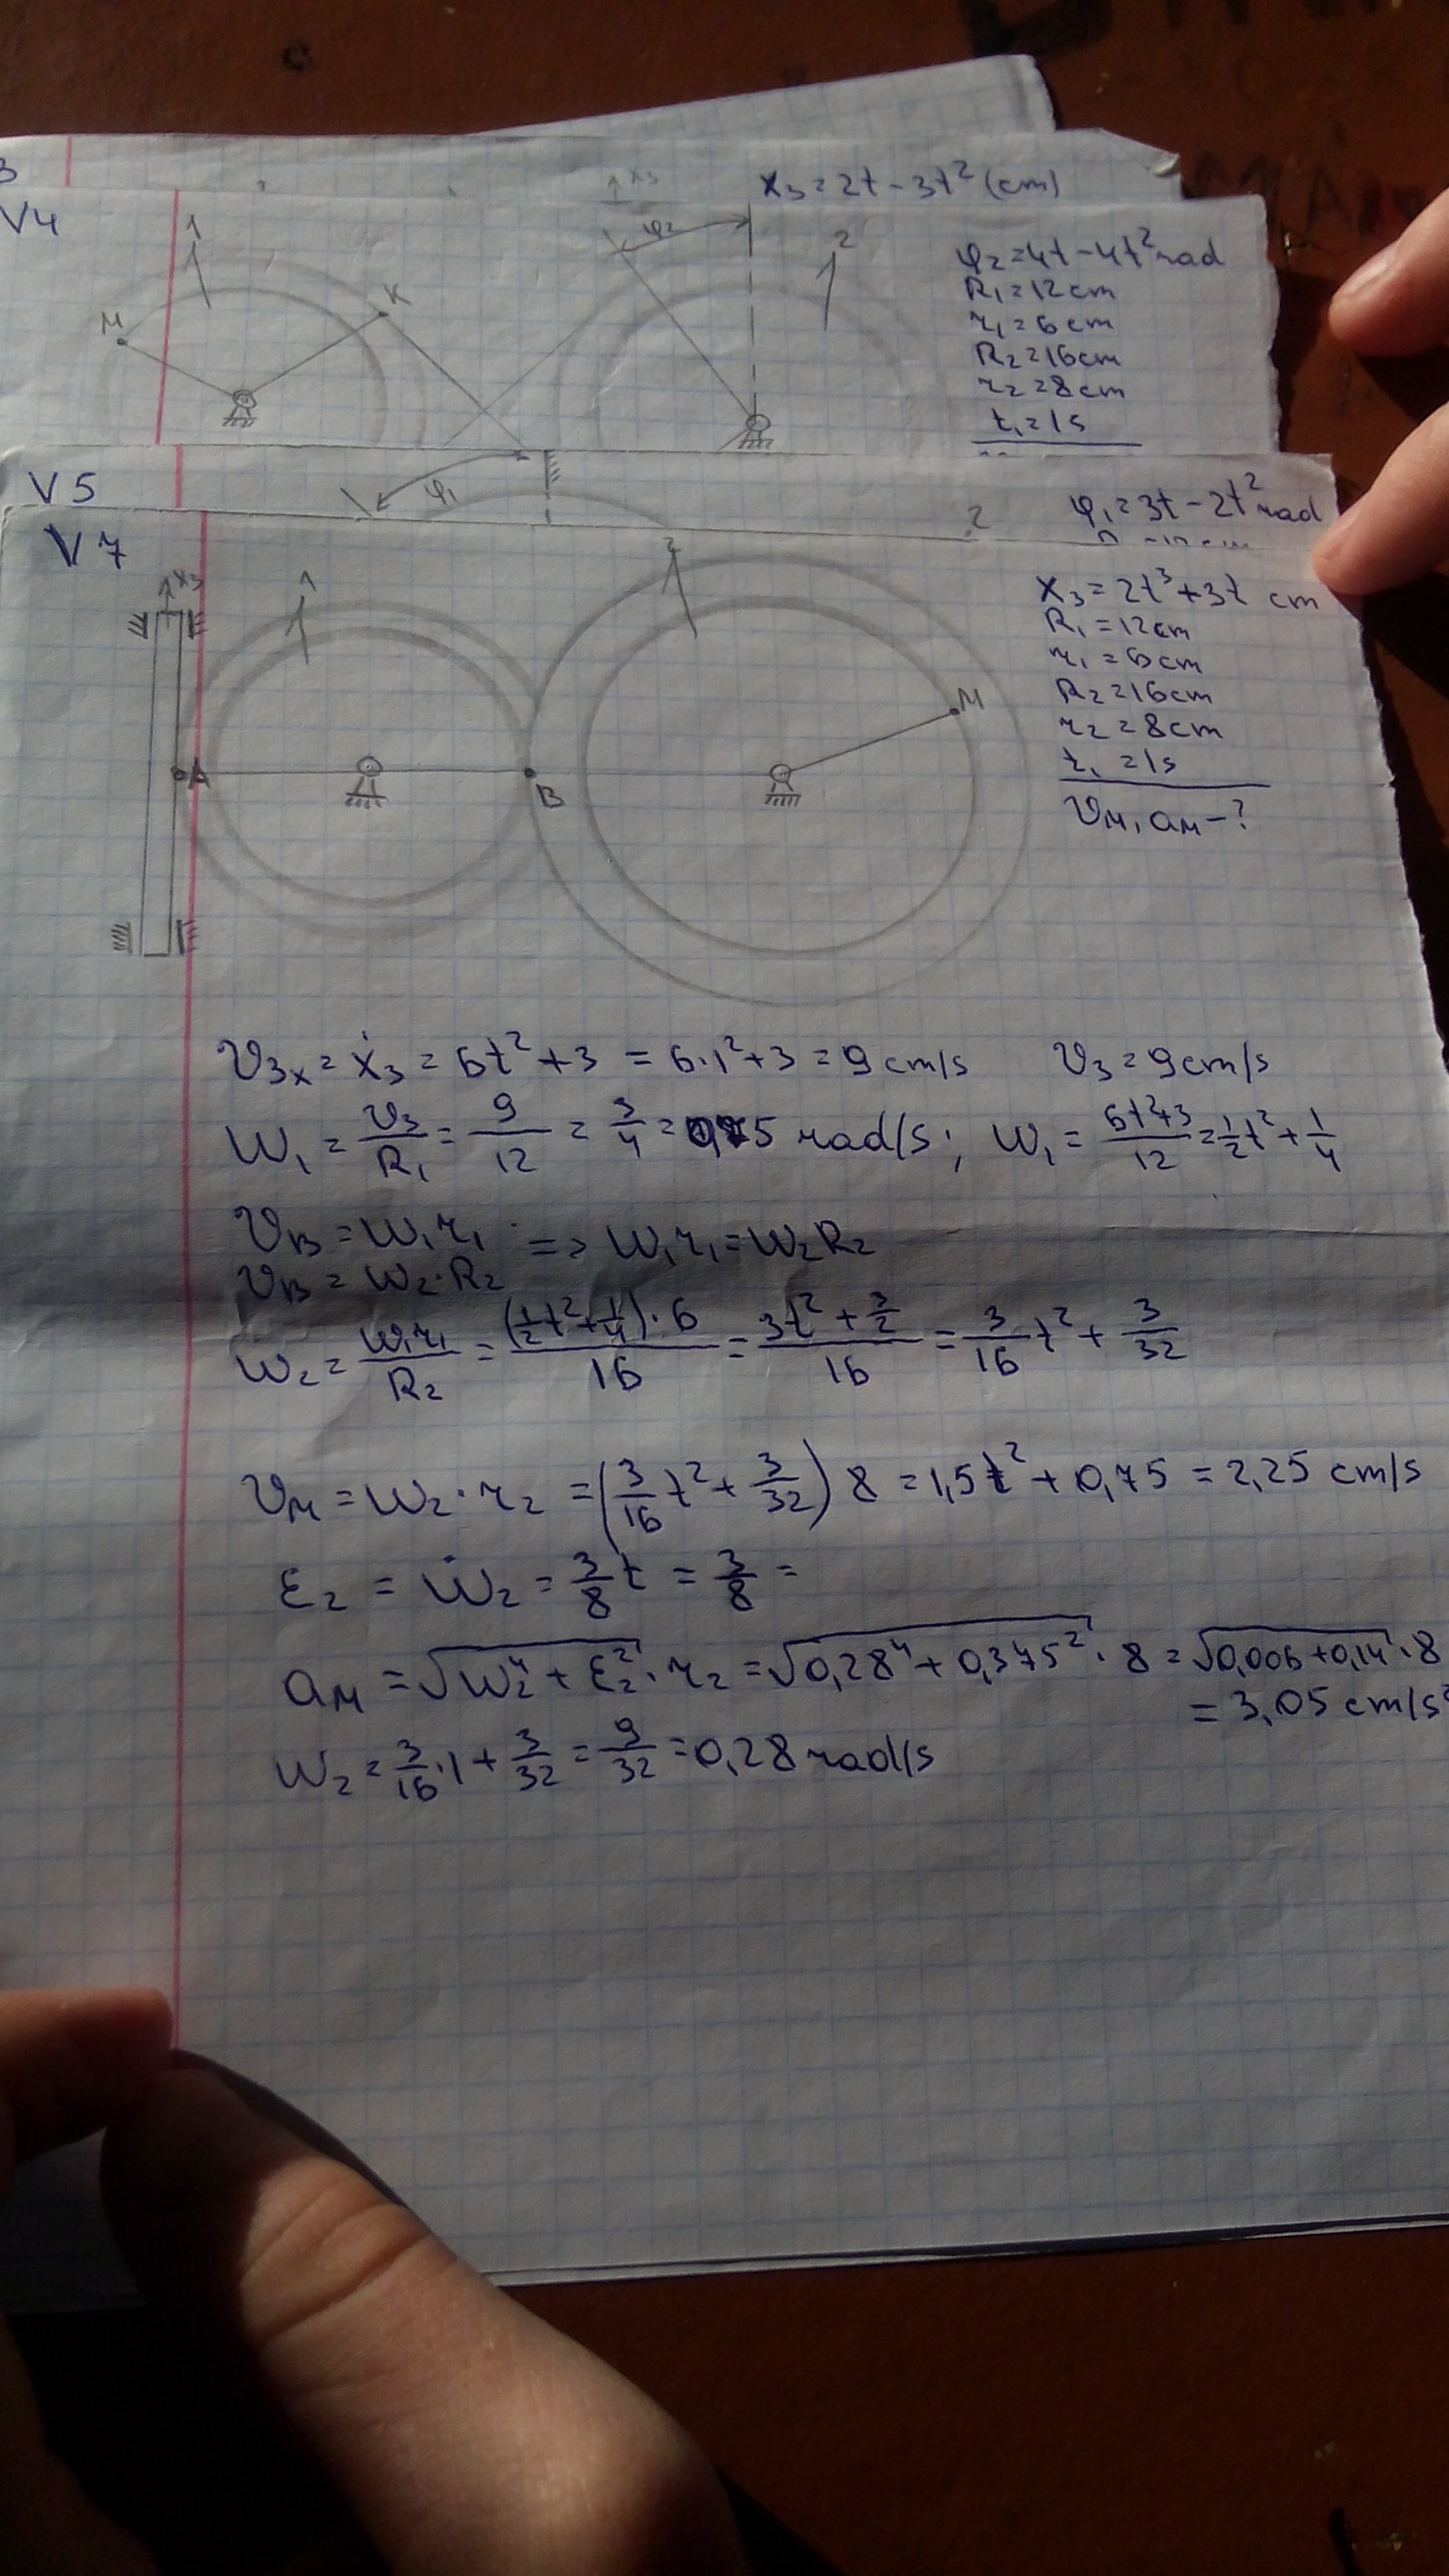 3
x₃=2t-3t² (cm)
V4
1
M
K
x₃
φ₂
2
φ₂=4t-4t² rad
R₁=12cm
r₁=6cm
R₂=16cm
r₂=8cm
t₁=1s
V5
φ₁
2
φ₁=3t-2t² rad
V7
x₃
1
2
A
B
M
x₃=2t³+3t cm
R₁=12cm
r₁=6cm
R₂=16cm
r₂=8cm
t₁=1s
υм, aм-?
υ₃ₓ=ẋ₃=6t²+3=6·1²+3=9cm/s υ₃=9cm/s
ω₁=υ₃/R₁=9/12=3/4=0,75 rad/s; ω₁=(6t²+3)/12=1/2t²+1/4
υв=ω₁r₁ => ω₁r₁=ω₂R₂
υв=ω₂·R₂
ω₂=ω₁r₁/R₂=((1/2t²+1/4)·6)/16=(3t²+3/2)/16=3/16t²+3/32
υм=ω₂·r₂=(3/16t²+3/32)8=1,5t²+0,75=2,25 cm/s
ε₂=ω̇₂=3/8t=3/8=
aм=√(ω₂⁴+ε₂²)·r₂=√(0,28⁴+0,375²)·8=√(0,006+0,14)·8
=3,05 cm/s²
ω₂=3/16·1+3/32=9/32=0,28 rad/s